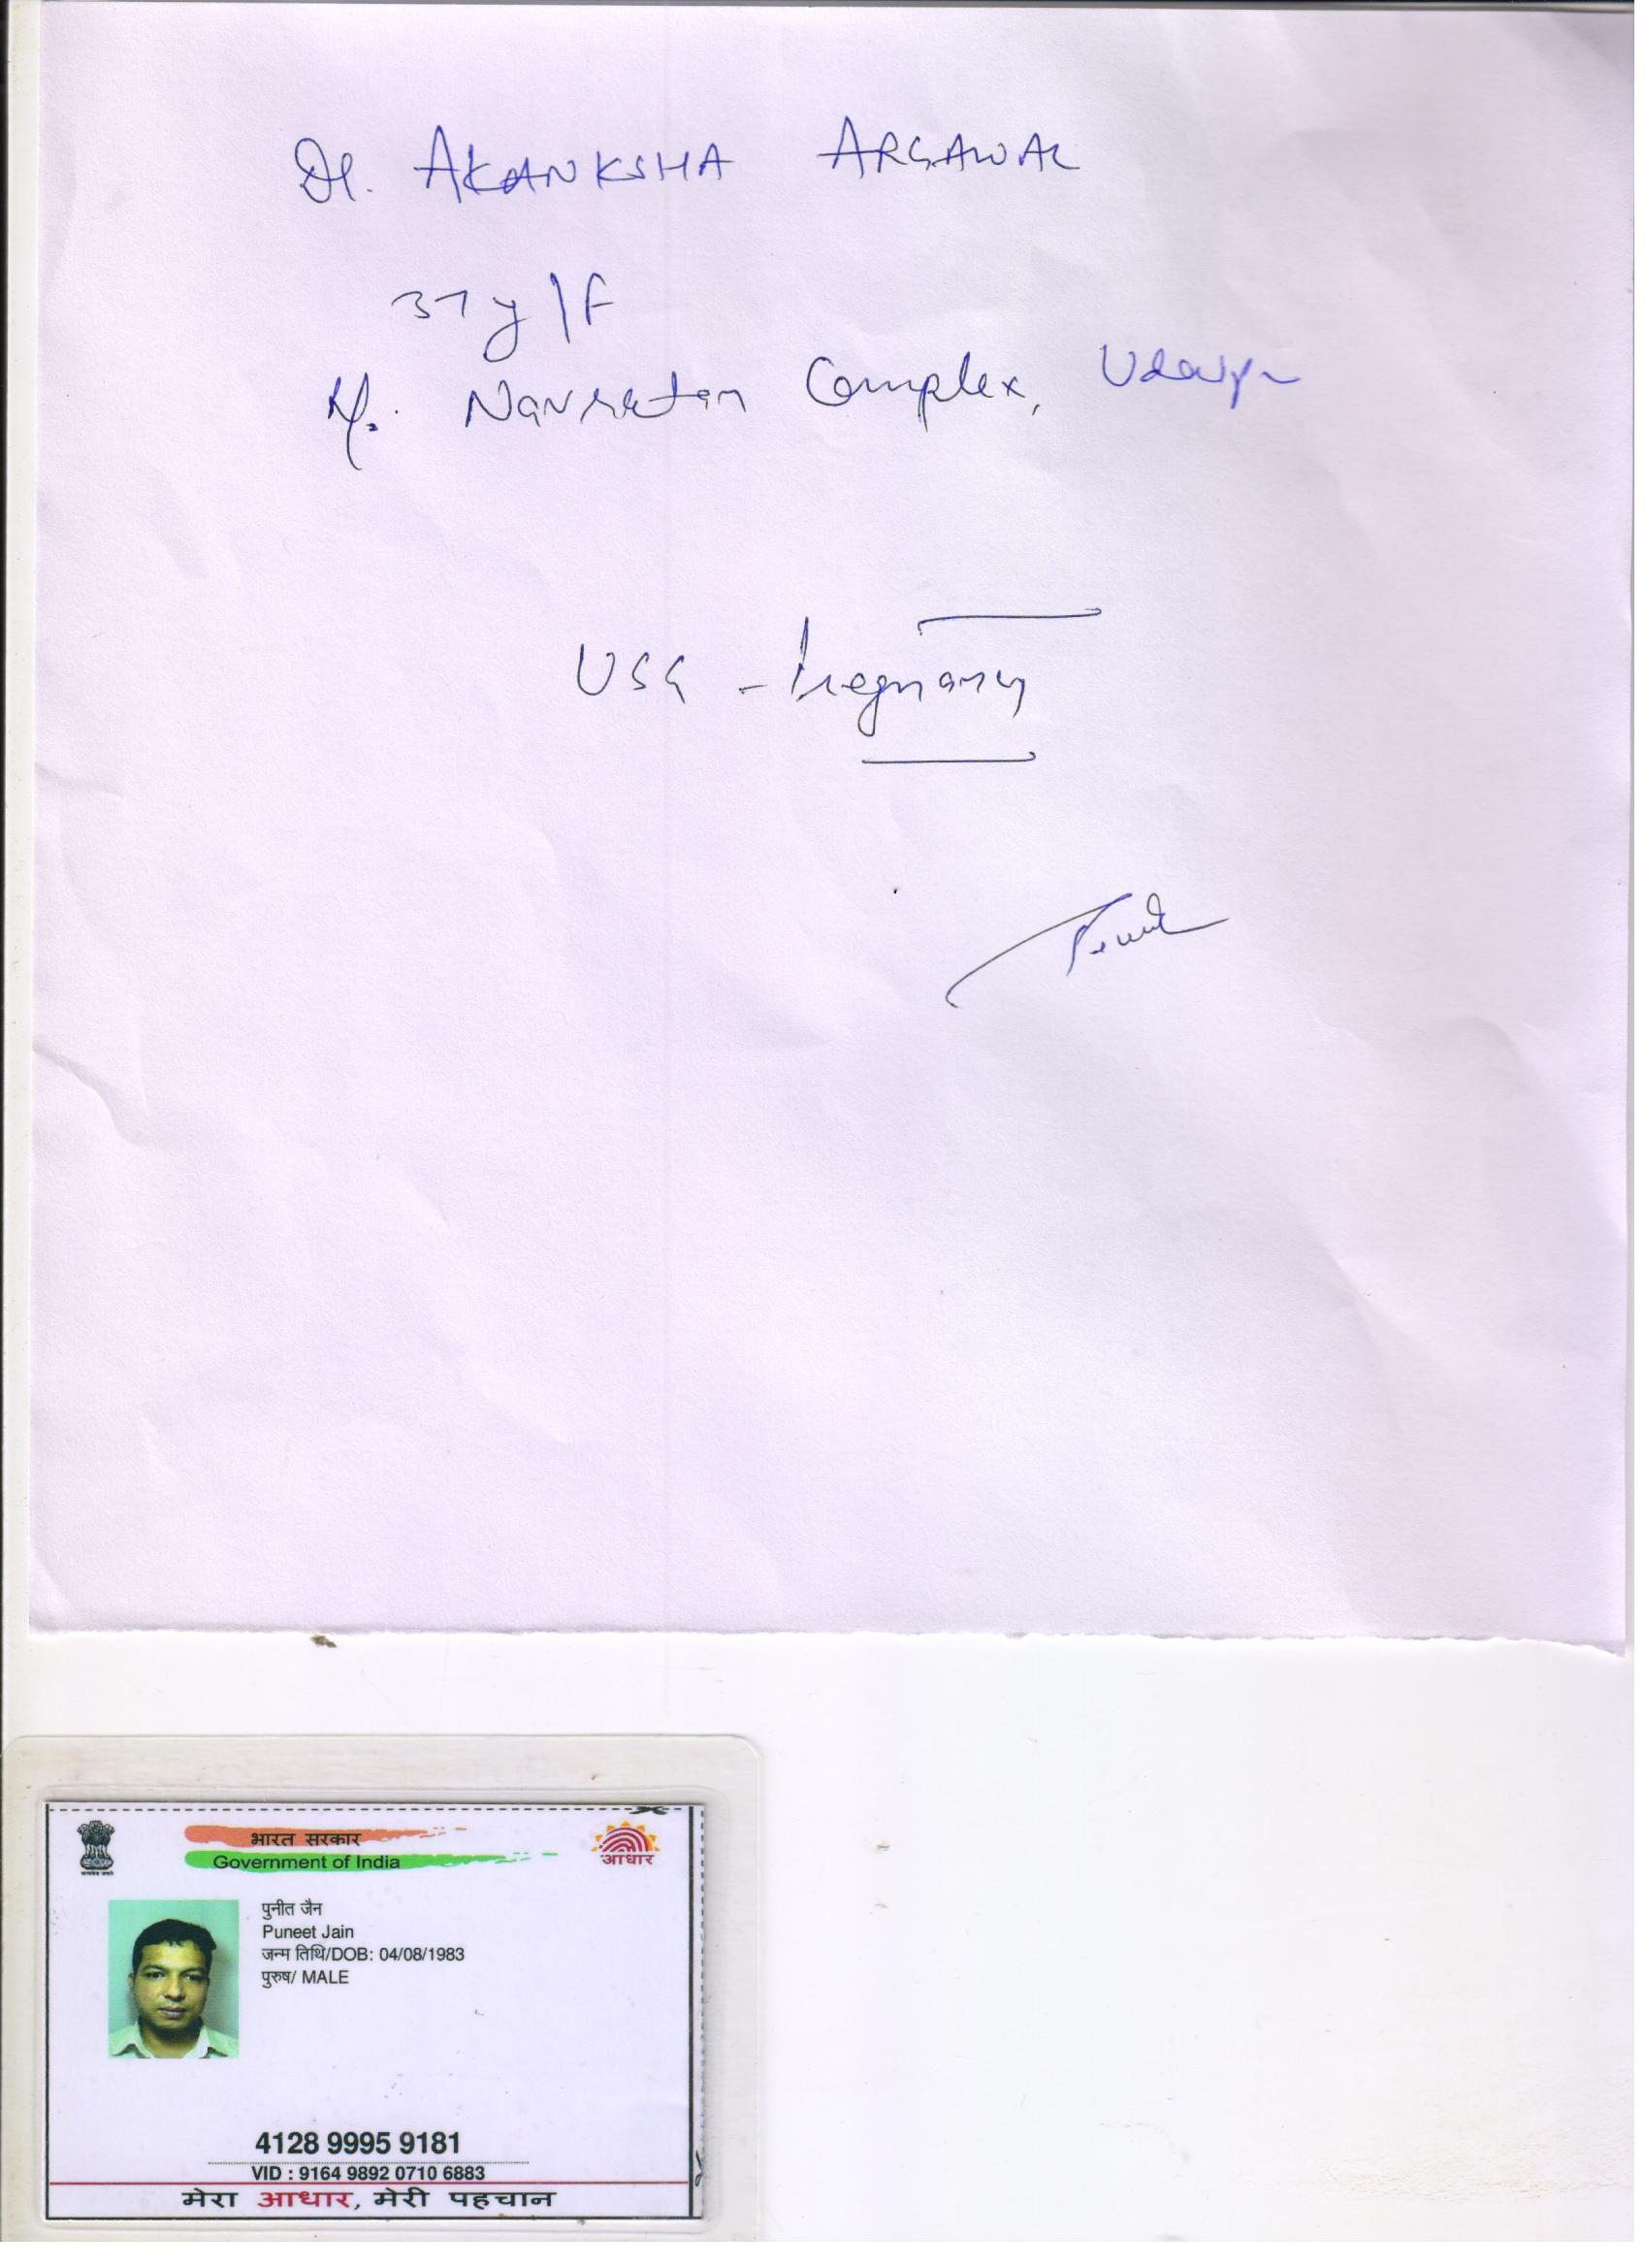 Dr. AKANKSHA ARGAWAL
37 y/F
Navratan Complex, Udaipur
USG - Pregnancy
भारत सरकार
Government of India
आधार
पुनीत जैन
Puneet Jain
जन्म तिथि/DOB: 04/08/1983
पुरुष/ MALE
4128 9995 9181
VID : 9164 9892 0710 6883
मेरा आधार, मेरी पहचान